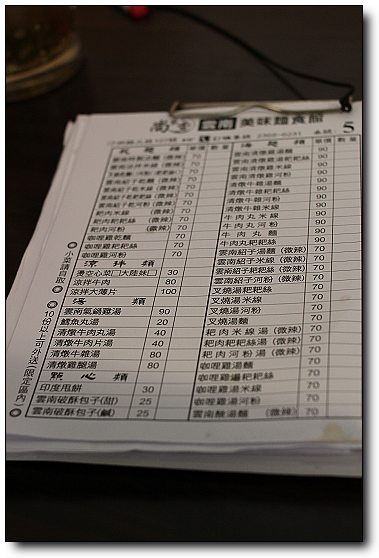 尚 雲 雲南 美味麵食館
訂購專線 2368-6231 桌號: 5
乾麵類 單價 數量
湯麵類 單價 數量
雲南特製涼麵 (微辣) 70
雲南涼拌米線 (微辣)
雲南紹子乾麵 (微辣) 70
雲南紹子乾米線 (微辣) 70
雲南紹子乾粑粑絲 (微辣) 70
雲南紹子乾河粉 (微辣) 70
粑肉米線 (微辣) 70
粑肉河粉 (微辣) 70
咖哩雞乾麵 70
咖哩雞粑粑絲 70
咖哩雞河粉 70
涼拌類
燙空心菜□大陸妹□ 30
涼拌牛肉 80
涼拌大薄片 100
湯類
雲南氣鍋雞湯 90
鱈魚丸湯 20
清燉牛肉丸湯 40
清燉牛肉片湯 40
清燉牛雜湯 80
清燉雞腿湯 80
點心類
印度甩餅 30
雲南破酥包子(甜) 25
雲南破酥包子(鹹) 25
雲南清燉雞湯麵 90
雲南清燉雞湯粑粑絲 90
雲南清燉雞湯米線 90
雲南清燉雞湯河粉 90
清燉牛雜湯麵 90
清燉牛雜粑粑絲 90
清燉牛雜河粉 90
清燉牛雜米線 90
牛肉丸米線 90
牛肉丸河粉 90
牛肉丸麵 90
牛肉丸粑粑絲 90
雲南紹子湯麵 (微辣) 70
雲南紹子米線 (微辣) 70
雲南紹子粑粑絲 (微辣) 70
叉燒湯粑粑絲 70
叉燒湯米線 70
叉燒湯河粉 70
叉燒湯麵 70
粑肉米線湯 (微辣) 70
粑肉粑粑絲湯 (微辣) 70
粑肉河粉湯 (微辣) 70
咖哩雞湯麵 70
咖哩雞湯粑粑絲 70
咖哩雞湯米線 70
咖哩雞湯河粉 70
雲南酸湯麵 (微辣) 70
◎小菜請自取◎
◎10份以上可外送(限定區內)◎